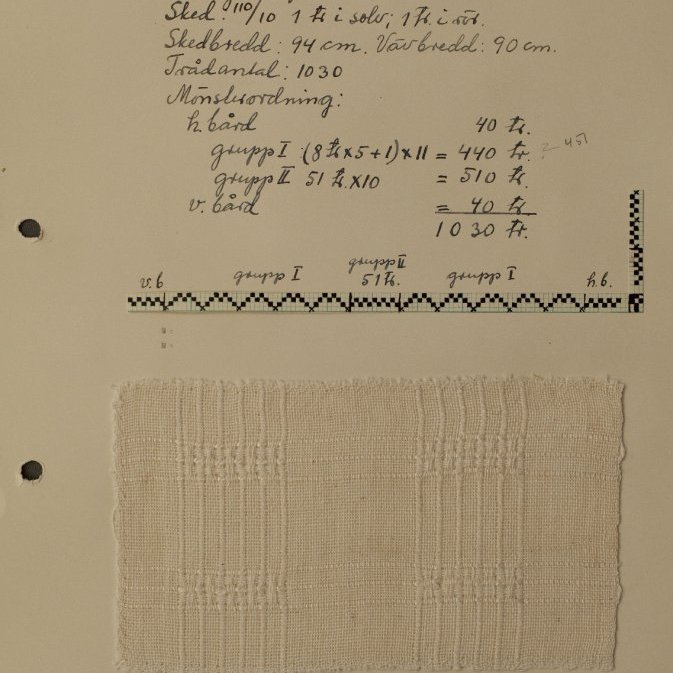 Sked: 110/10 1 tr i solv; 1 tr. i rör.
Skedbredd: 94 cm. Vävbredd: 90 cm.
Trådantal: 1030
Mönsterordning:
h. bård 40 tr.
grupp I (8 tr x 5 + 1) x 11 = 440 tr. ? 451
grupp II 51 tr. x 10 = 510 tr.
v. bård = 40 tr.
1030 tr.
v. b grupp I grupp II 51 tr. grupp I h. b.